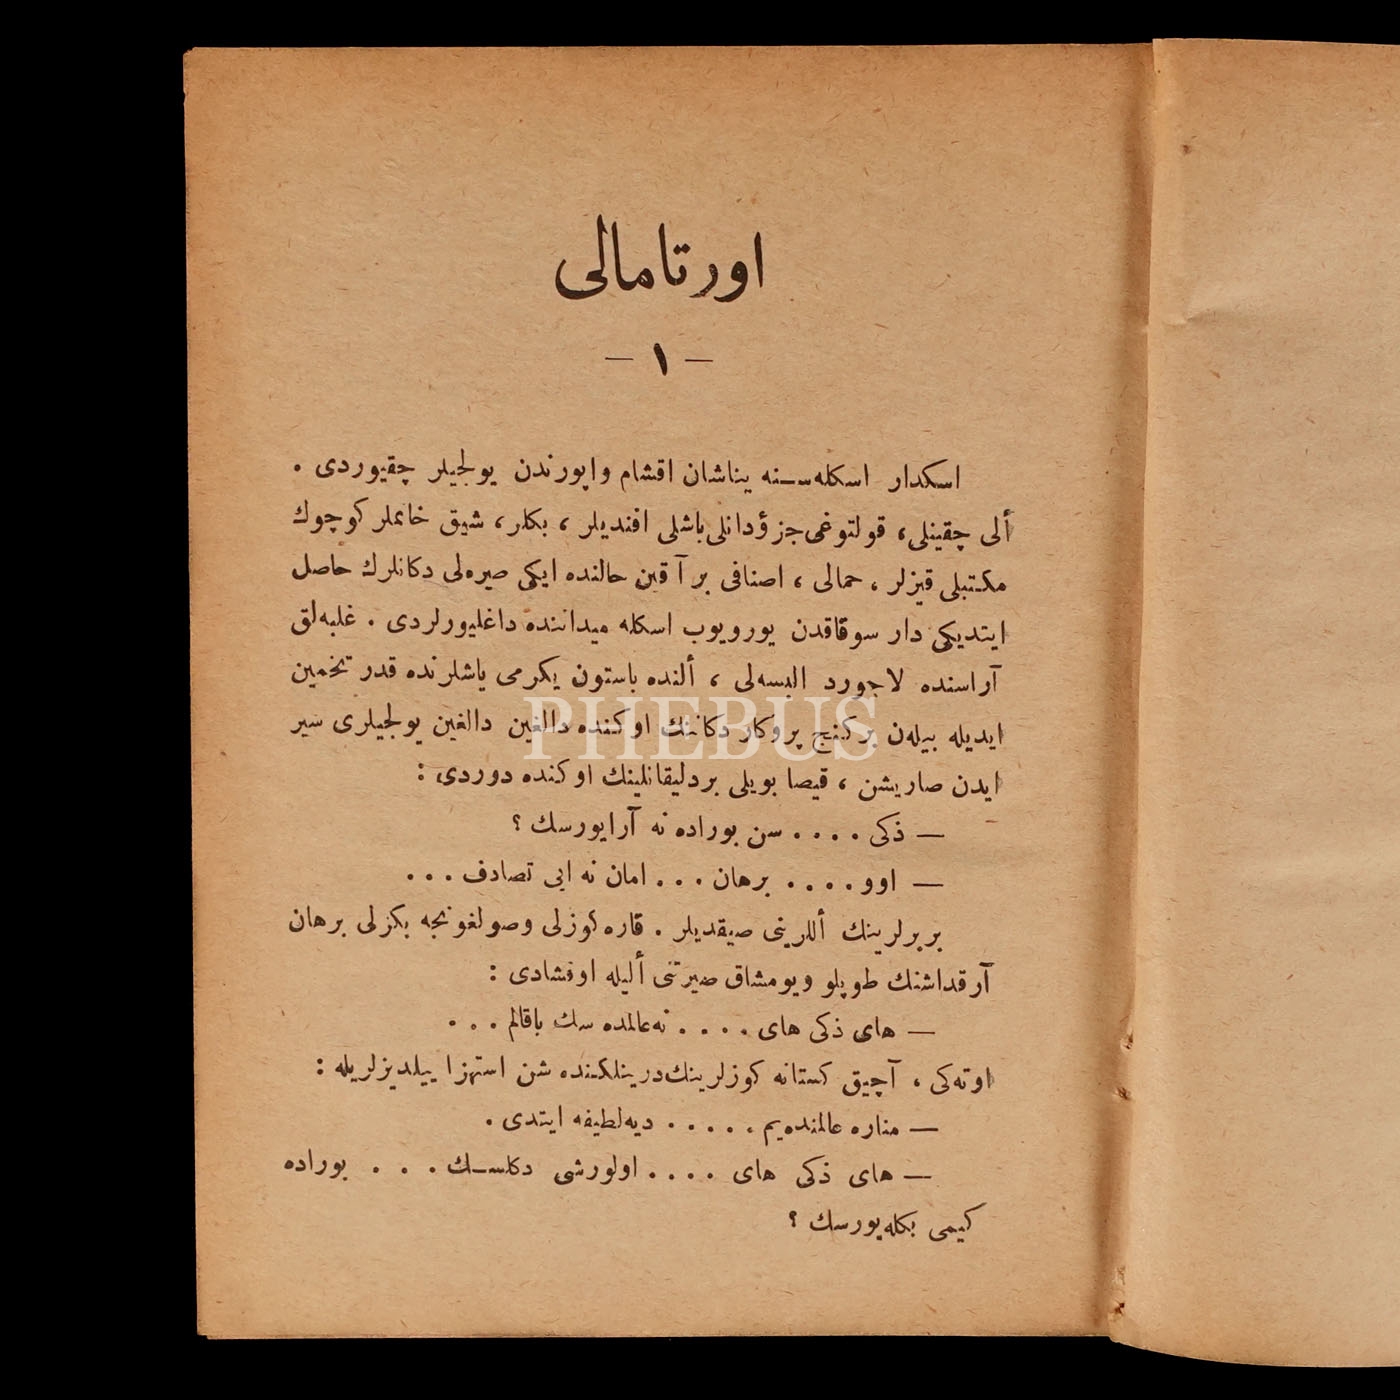 اورتامالی
— ١ —
اسكدار اسكله‌سـنه يناشان اقشام واپورندن يولجيلر چقيوردی .
ألی چقينلی، قولتوغی جزؤدانلی باشلی افنديلر ، بكلر، شيق خانملر كوچوك
مكتبلی قيزلر ، حمالی ، اصنافی بر آقين حالنده ايكی صيره‌لی دكانلرك حاصل
ايتديكی دار سوقاقدن يورويوب اسكله ميداننده داغليورلردی . غلبه‌لق
آراسنده لاجورد البسه‌لی ، ألنده باستون يكرمی ياشلرنده قدر تخمين
ايديله بيله‌ن بر كنج پروكار دكاننك اوكنده دالغين دالغين يولجيلری سير
ايدن صاريشن ، قيصا بويلی بر دليقانلينك اوكنده دوردی :
— ذكی . . . . سن بوراده نه آرايورسك ؟
— اوو . . . . برهان . . . امان نه ايی تصادف . . .
بربرلرينك أللرينی صيقديلر . قاره كوزلی وصولغونجه بكزلی برهان
آرقداشنك طوپلو ويومشاق صيرتنی أليله اوقشادی :
— های ذكی های . . . . نه عالمده سك باقالم . . .
اوته‌كی ، آچيق كستانه كوزلرينك درينلكنده شن استهزا ييلديزلريله :
— مناره عالمنده‌يم . . . . . ديه لطيفه ايتدی .
— های ذكی های . . . . اولورشی دكلسـك . . . بوراده
كيمی بكله‌يورسك ؟
PHEBUS